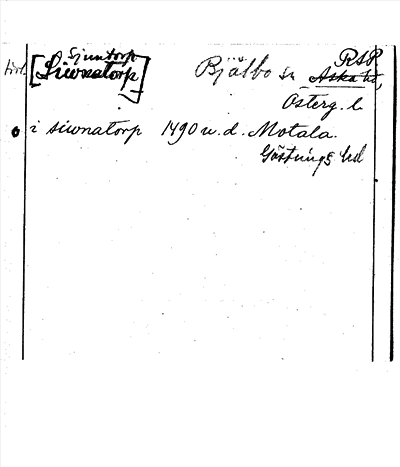 Sjuntorp RSP
[Siwnatorp] Bjälbo sn Aska hd,
Österg. l.
i siwnatorp 1490 u.d. Motala.
Göstrings hd